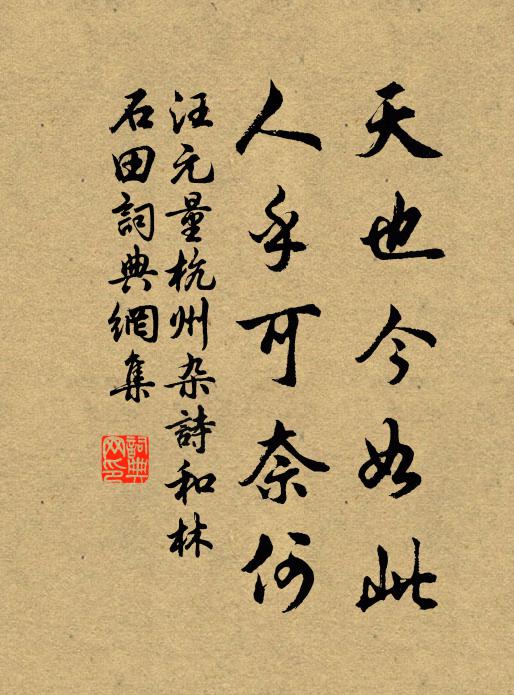 天也今如此
人乎可奈何
汪元量杭州杂詩和林
石田詞典網集
詞典网印